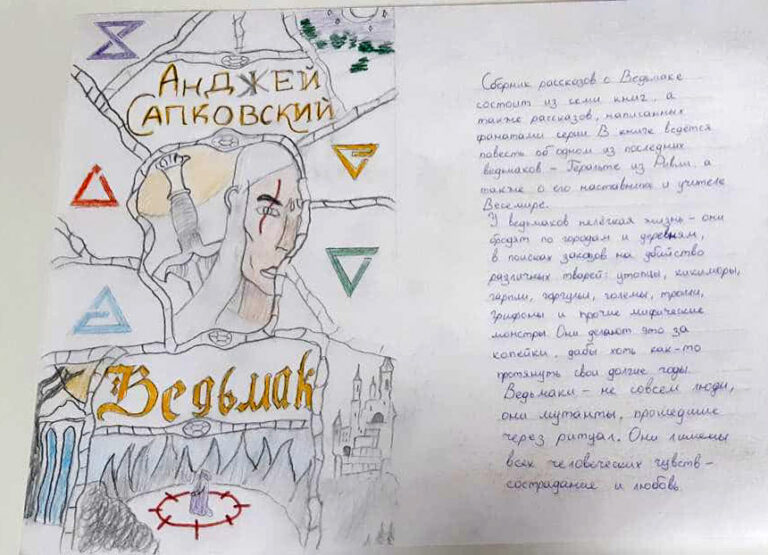 Анджей
Сапковский
Ведьмак
Сборник рассказов о Ведьмаке
состоит из семи книг, а
также рассказов, написанных
фанатами серии. В книге ведётся
повесть об одном из последних
ведьмаков – Геральте из Ривии, а
также о его наставнике и учителе
Весемире.
У ведьмаков нелёгкая жизнь – они
бродят по городам и деревням,
в поисках заказов на убийство
различных тварей: утопцы, кикиморы,
гарпии, горгульи, големы, тролли,
грифоны и прочие мифические
монстры. Они делают это за
копейки, дабы хоть как-то
протянуть свои долгие годы.
Ведьмаки – не совсем люди,
они мутанты, прошедшие
через ритуал. Они лишены
всех человеческих чувств –
сострадание и любовь.